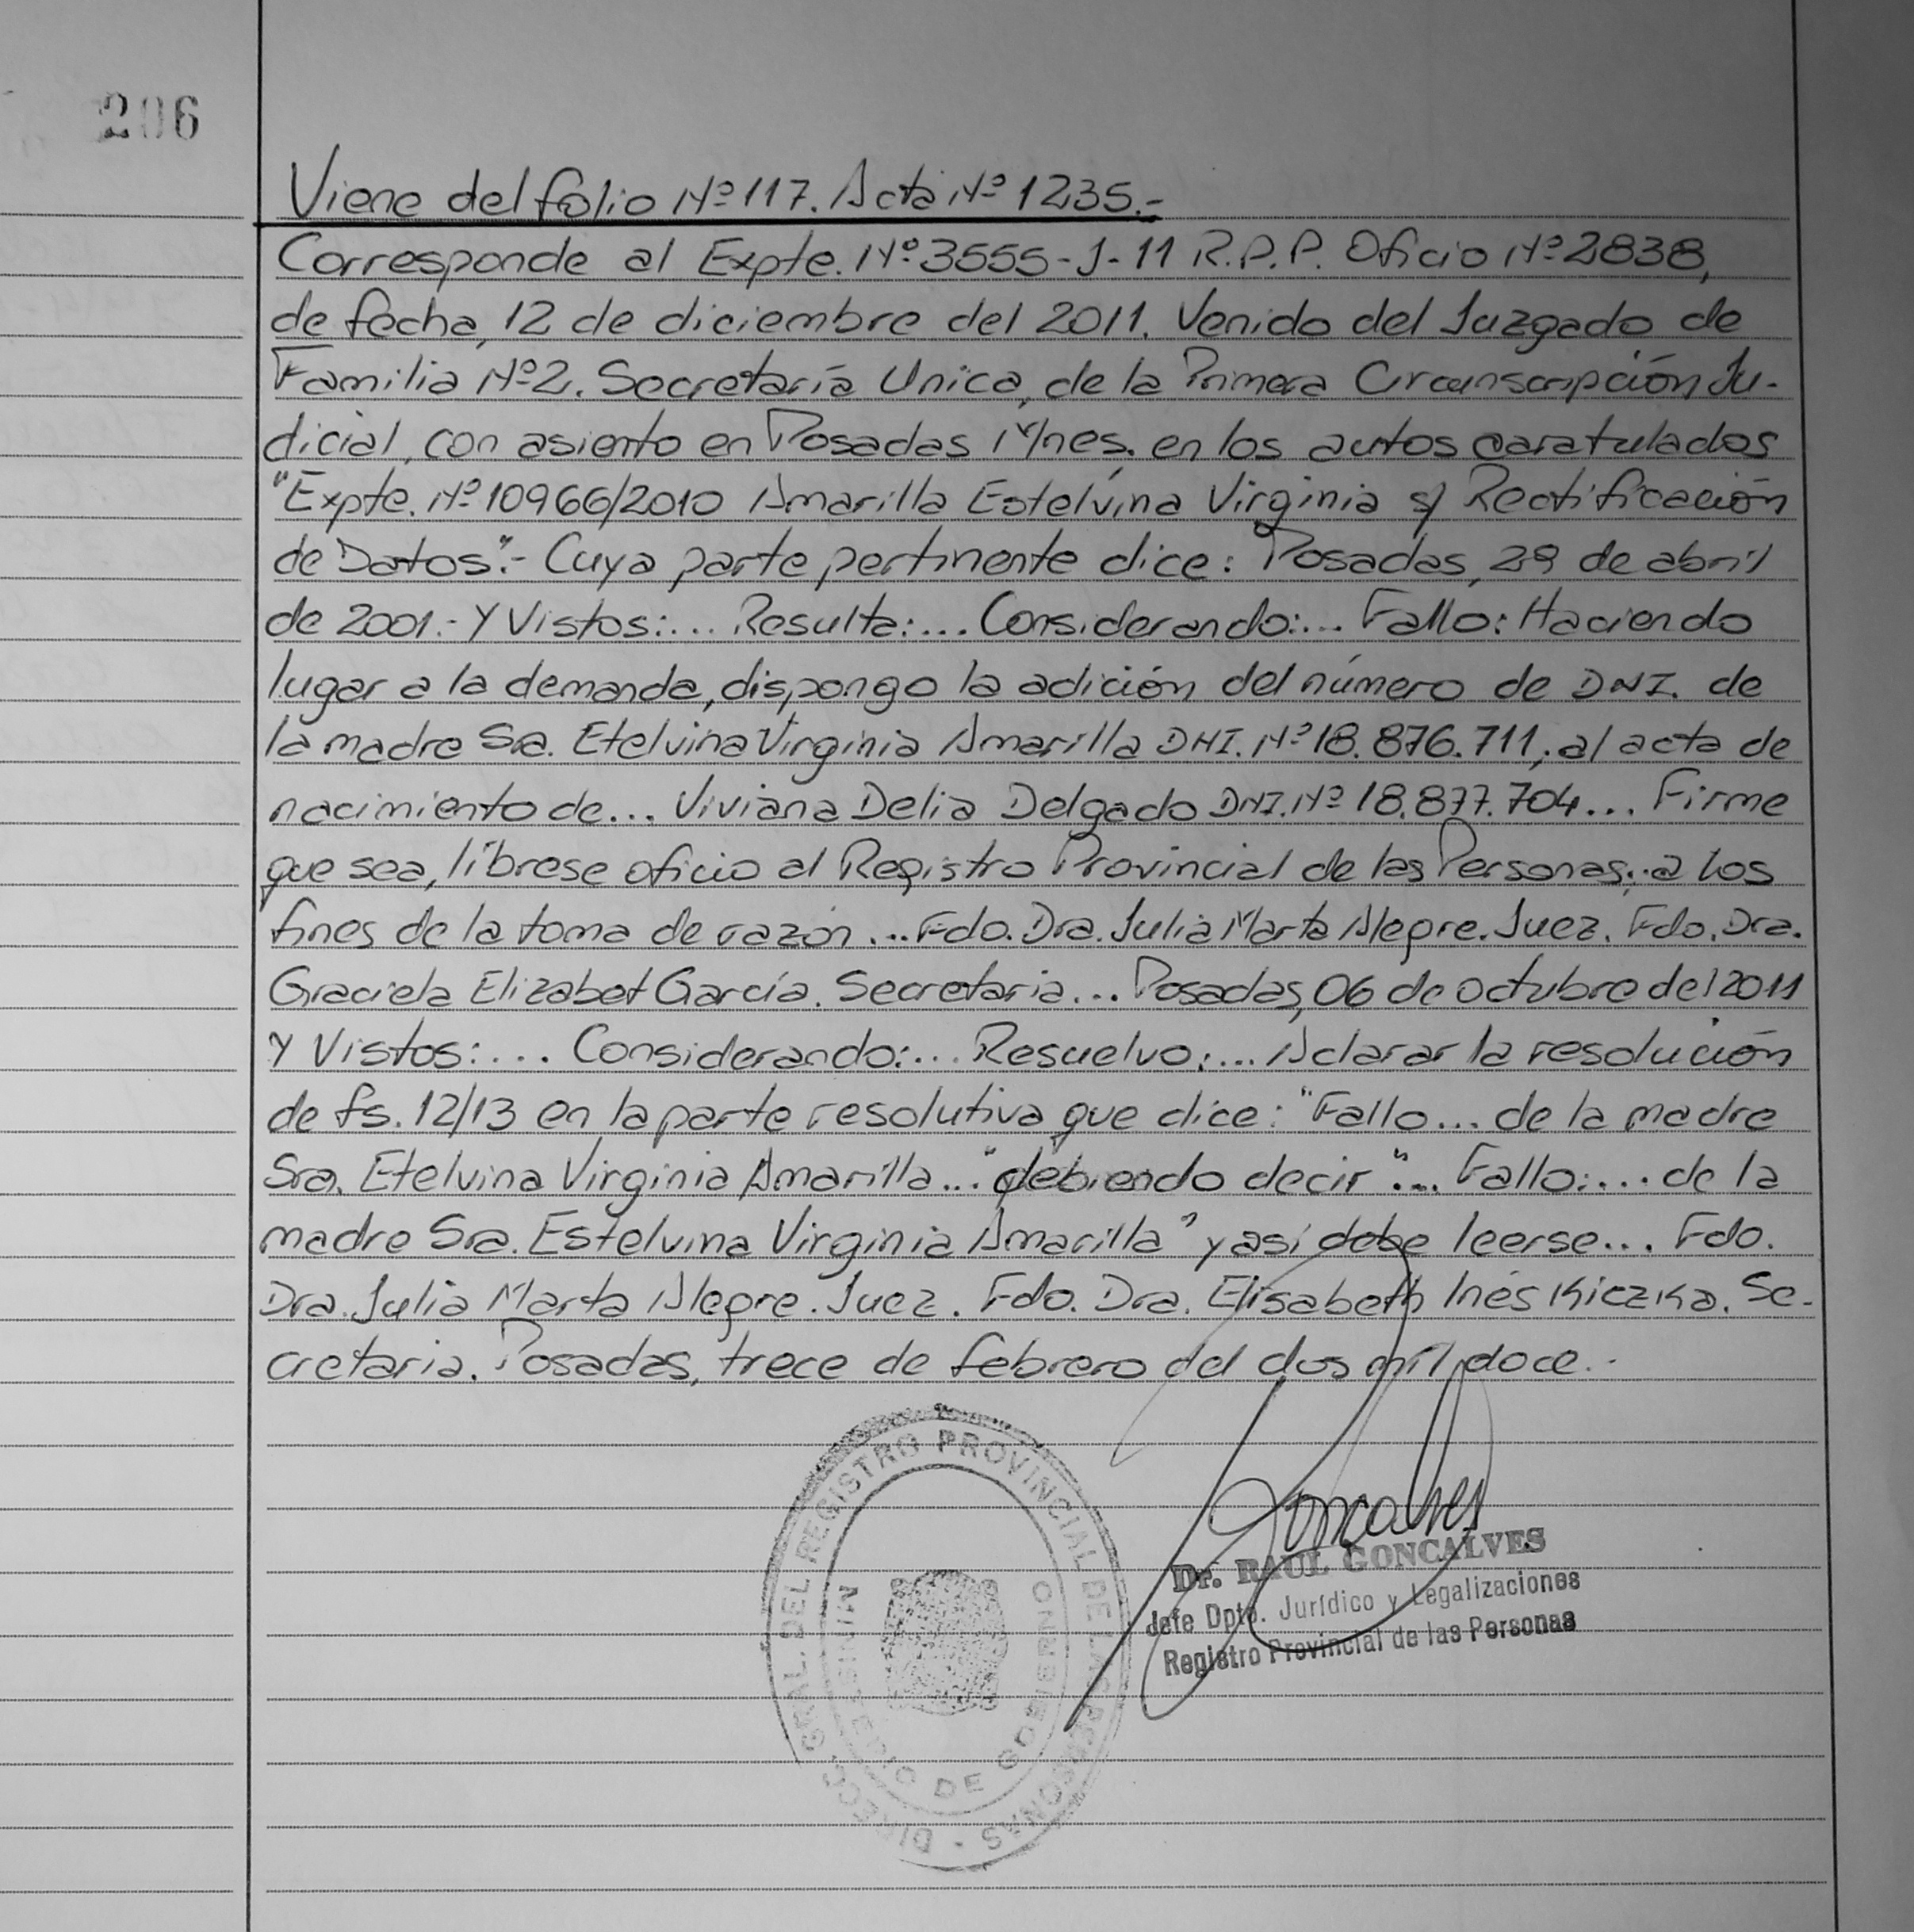 206
Viene del folio Nº 117. Acta Nº 1235.-
Corresponde al Expte. Nº 3555-J-11 R.P.P. Oficio Nº 2838,
de fecha, 12 de diciembre del 2011. Venido del Juzgado de
Familia Nº 2. Secretaría Unica, de la Primera Circunscripción Ju-
dicial, con asiento en Posadas Mnes. en los autos caratulados
"Expte. Nº 10966/2010 Amarilla Estelvina Virginia s/ Rectificación
de Datos".- Cuya parte pertinente dice: Posadas, 29 de abril
de 2001.- Y Vistos:... Resulta:... Considerando:... Fallo: Haciendo
lugar a la demanda, dispongo la adición del número de DNI. de
la madre Sra. Etelvina Virginia Amarilla DNI. Nº 18.876.711, al acta de
nacimiento de... Viviana Delia Delgado DNI. Nº 18.877.704... Firme
que sea, líbrese oficio al Registro Provincial de las Personas, a los
fines de la toma de razón ... Fdo. Dra. Julia Marta Alegre. Juez. Fdo. Dra.
Graciela Elizabet García. Secretaria... Posadas, 06 de octubre del 2011
Y Vistos:... Considerando:... Resuelvo:... Aclarar la resolución
de fs. 12/13 en la parte resolutiva que dice: "Fallo... de la madre
Sra. Etelvina Virginia Amarilla..." debiendo decir "... Fallo:... de la
madre Sra. Estelvina Virginia Amarilla" y así debe leerse... Fdo.
Dra. Julia Marta Alegre. Juez. Fdo. Dra. Elisabeth Inés Kiczka. Se-
cretaria. Posadas, trece de febrero del dos mil doce.-
DIRECC. GRAL. DEL REGISTRO PROVINCIAL DE LAS PERSONAS -
MINISTERIO DE GOBIERNO
Goncalves
Dr. RAUL GONCALVES
Jefe Dpto. Jurídico y Legalizaciones
Registro Provincial de las Personas